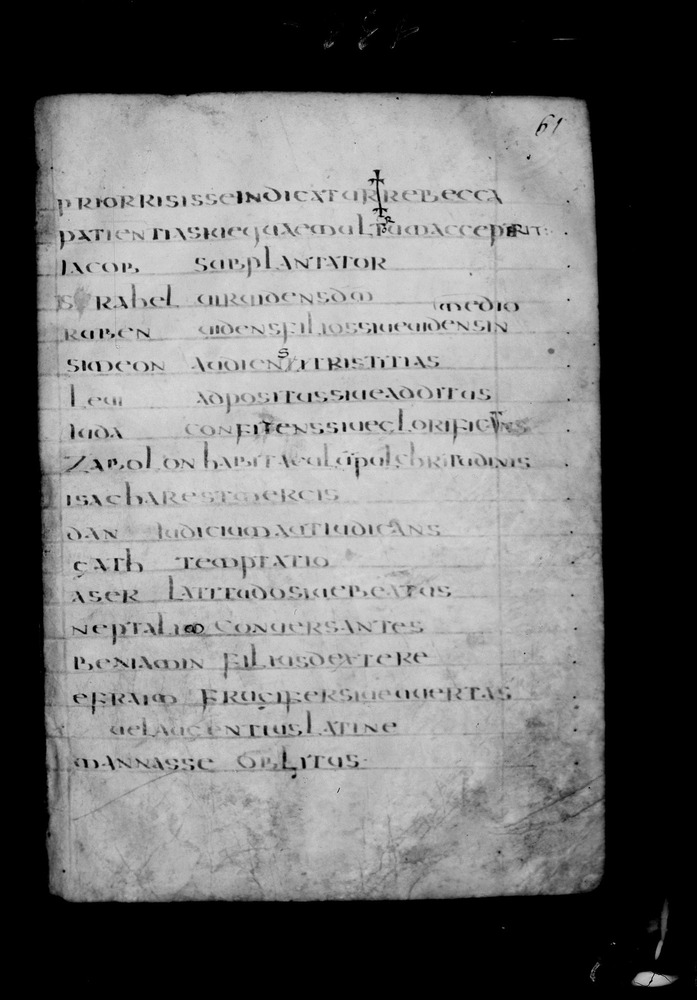 61
PRIOR RISISSE INDICATUR REBECCA
PATIENTIA SIUE QUAE MULTUM ACCEPERIT
IACOB SUBPLANTATOR
RAHEL UIR UIDENS DM
RUBEN UIDENS FILIOS SIUE UIDENS IN MEDIO
SIMEON AUDIENS TRISTITIAS
LEUI ADPOSITUS SIUE ADDITUS
IUDA CONFITENS SIUE GLORIFICANS
ZABOLON HABITACULU PULCHRITUDINIS
ISACHAR EST MERCIS
DAN IUDICIUM AUT IUDICANS
GATH TEMPTATIO
ASER LATITUDO SIUE BEATUS
NEPTALIM CONUERSANTES
BENIAMIN FILIUS DEXTERE
EFRAIM FRUGIFER SIUE UUERTAS
UEL AUGENTIUS LATINE
MANNASSE OBLITUS